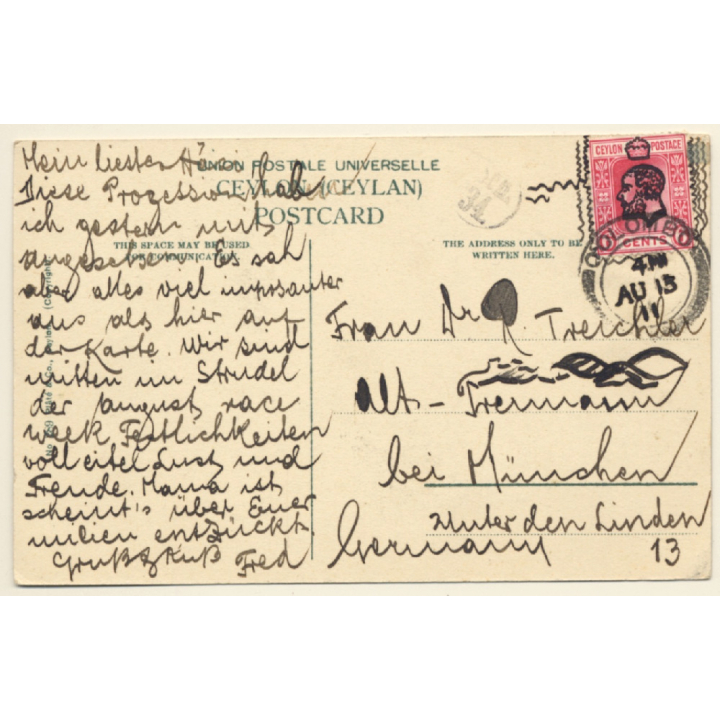 UNION POSTALE UNIVERSELLE
CEYLON (CEYLAN)
POSTCARD
THIS SPACE MAY BE USED
FOR COMMUNICATION.
THE ADDRESS ONLY TO BE
WRITTEN HERE.
CEYLON POSTAGE
CENTS
COLOMBO
4 PM
AU 15
11
34
Mein liebster
Diese Procession habe
ich gestern mit
angesehen. Es sah
aber alles viel imposanter
aus als hier auf
der Karte. Wir sind
mitten im Strudel
der august race
week Festlichkeiten
voll eitel Lust und
Freude. Mama ist
scheint's über Euer
milien entzückt.
Gruß & Kuß Fred
Frau Dr Treichler
Alt-
bei München
Unter den Linden
Germany 13
(Copyright)